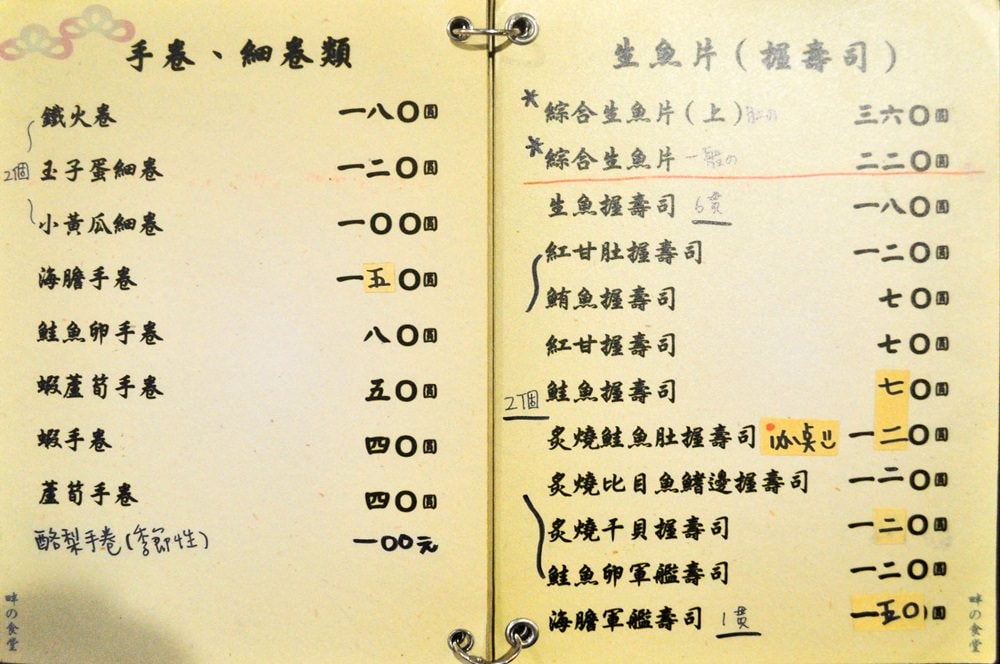 手卷、細卷類
鐵火卷 一八〇圓
2個 玉子蛋細卷 一二〇圓
小黃瓜細卷 一〇〇圓
海膽手卷 一五〇圓
鮭魚卵手卷 八〇圓
蝦蘆荀手卷 五〇圓
蝦手卷 四〇圓
蘆荀手卷 四〇圓
酪梨手卷(季節性) 一00元
畔の食堂
生魚片(握壽司)
*綜合生魚片(上) 三六〇圓
*綜合生魚片 一般の 二二〇圓
生魚握壽司 6貫 一八〇圓
紅甘肚握壽司 一二〇圓
鮪魚握壽司 七〇圓
紅甘握壽司 七〇圓
2個 鮭魚握壽司 七〇圓
炙燒鮭魚肚握壽司 一二〇圓
炙燒比目魚鰭邊握壽司 一二〇圓
炙燒干貝握壽司 一二〇圓
鮭魚卵軍艦壽司 一二〇圓
海膽軍艦壽司 1貫 一五〇圓
畔の食堂